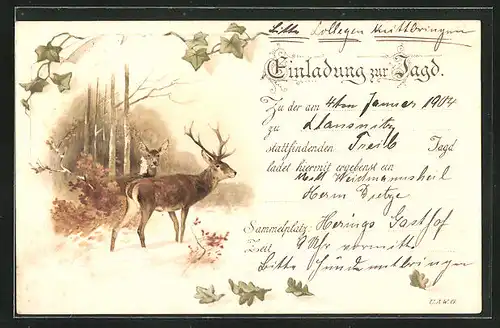 Bitte Collegen mitbringen
Einladung zur Jagd.
Zu der am 4ten Januar 1904
zu
stattfindenden Treib Jagd
ladet hiermit ergebenst ein
Mit Weidmannsheil
Herm Dietze
Sammelplatz: Herings Gasthof
Zeit 9 Uhr vormitt
Bitte Hunde mitbringen